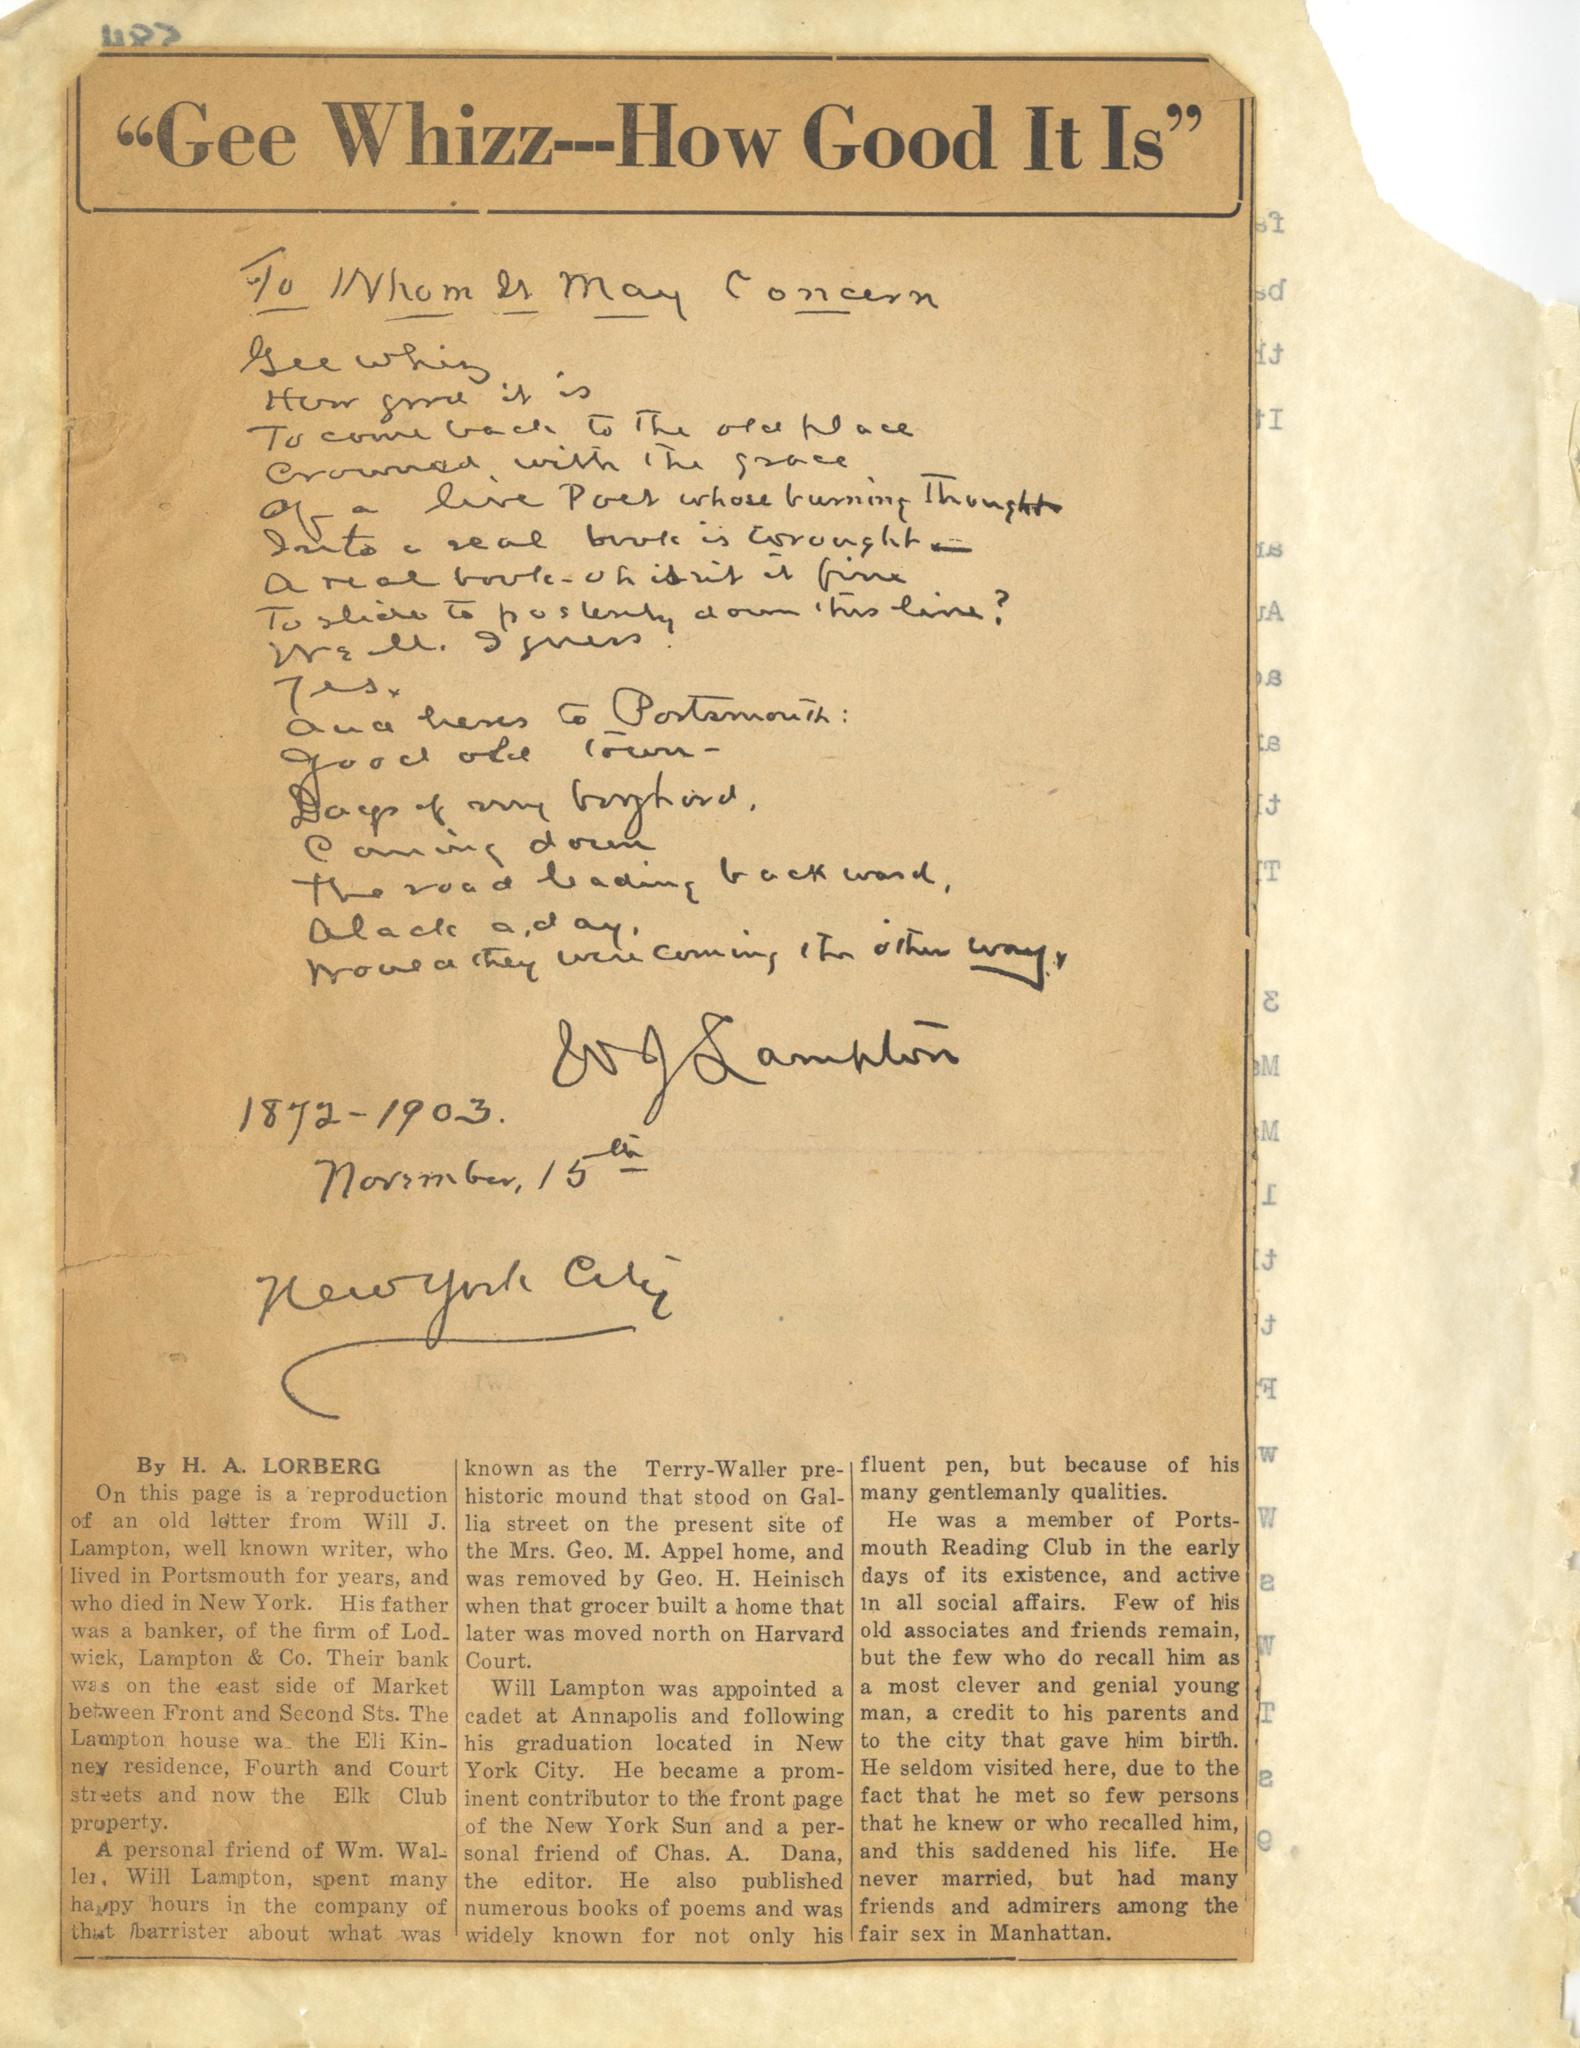 “Gee Whizz---How Good It Is”
To Whom It May Concern
Gee whiz
How good it is
To come back to the old place
Crowned with the grace
Of a live Poet whose burning Thought
Into a real book is wrought—
A real book-oh isnt it fine
To slide to posterity down this line?
Well. I guess.
Yes.
And heres to Portsmouth:
Good old Town-
Days of my boyhood,
Coming down
The road leading backward,
Alack a day,
Would they were coming the other way.
W J Lampton
1872-1903.
November, 15th
New York City
By H. A. LORBERG
On this page is a reproduction
of an old letter from Will J.
Lampton, well known writer, who
lived in Portsmouth for years, and
who died in New York. His father
was a banker, of the firm of Lod-
wick, Lampton & Co. Their bank
was on the east side of Market
between Front and Second Sts. The
Lampton house wa the Eli Kin-
ney residence, Fourth and Court
streets and now the Elk Club
property.
A personal friend of Wm. Wal-
ler, Will Lampton, spent many
happy hours in the company of
that barrister about what was
known as the Terry-Waller pre-
historic mound that stood on Gal-
lia street on the present site of
the Mrs. Geo. M. Appel home, and
was removed by Geo. H. Heinisch
when that grocer built a home that
later was moved north on Harvard
Court.
Will Lampton was appointed a
cadet at Annapolis and following
his graduation located in New
York City. He became a prom-
inent contributor to the front page
of the New York Sun and a per-
sonal friend of Chas. A. Dana,
the editor. He also published
numerous books of poems and was
widely known for not only his
fluent pen, but because of his
many gentlemanly qualities.
He was a member of Ports-
mouth Reading Club in the early
days of its existence, and active
in all social affairs. Few of his
old associates and friends remain,
but the few who do recall him as
a most clever and genial young
man, a credit to his parents and
to the city that gave him birth.
He seldom visited here, due to the
fact that he met so few persons
that he knew or who recalled him,
and this saddened his life. He
never married, but had many
friends and admirers among the
fair sex in Manhattan.